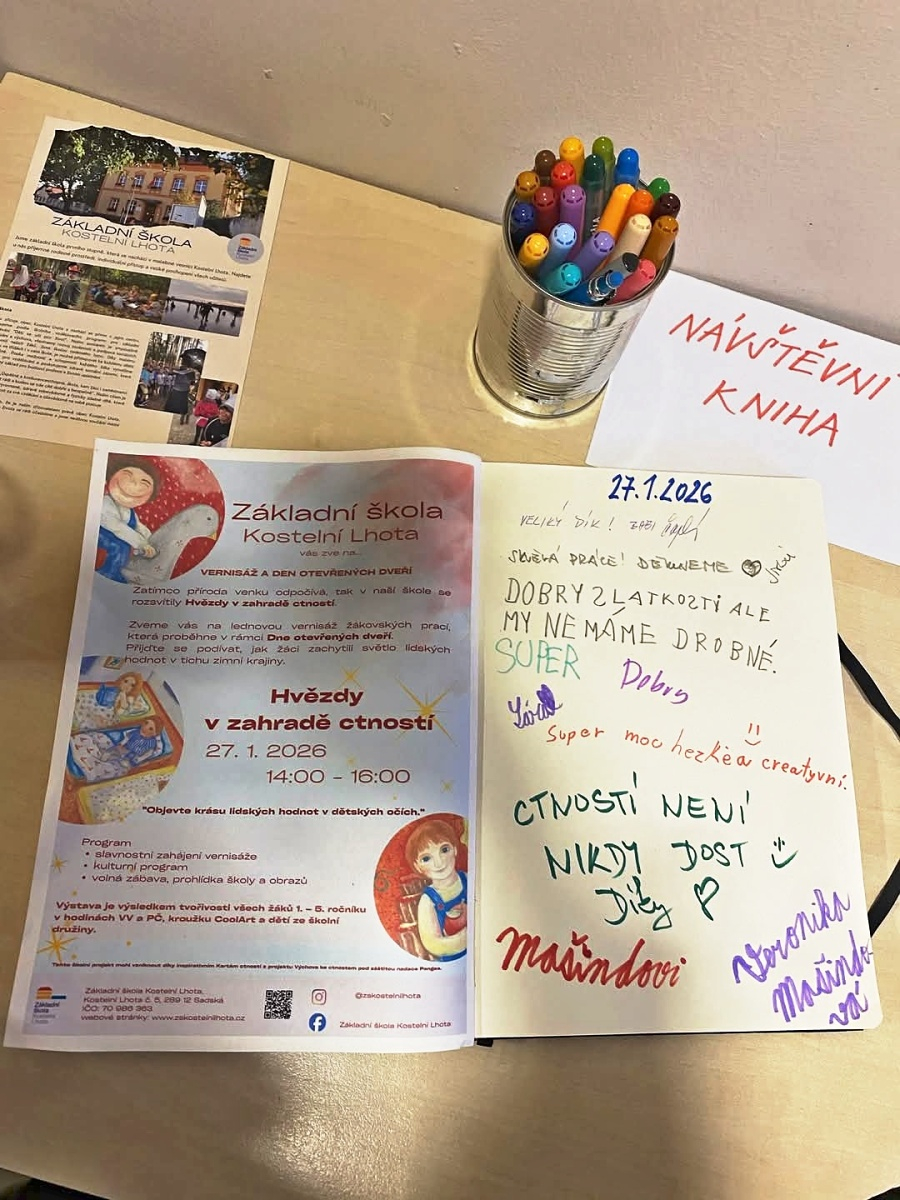 ZÁKLADNÍ ŠKOLA
KOSTELNÍ LHOTA
Jsme základní škola prvního stupně, která se nachází v malebné vesnici Kostelní Lhota. Najdete
u nás příjemné rodinné prostředí, individuální přístup a velké pochopení všech učitelů.
NÁVŠTĚVNÍ
KNIHA
Základní škola
Kostelní Lhota
vás zve na...
VERNISÁŽ A DEN OTEVŘENÝCH DVEŘÍ
Zatímco příroda venku odpočívá, tak v naší škole se
rozsvítily Hvězdy v zahradě ctností.
Zveme vás na lednovou vernisáž žákovských prací,
která proběhne v rámci Dne otevřených dveří.
Přijďte se podívat, jak žáci zachytili světlo lidských
hodnot v tichu zimní krajiny.
Hvězdy
v zahradě ctností
27. 1. 2026
14:00 - 16:00
"Objevte krásu lidských hodnot v dětských očích."
Program
• slavnostní zahájení vernisáže
• kulturní program
• volná zábava, prohlídka školy a obrazů
Výstava je výsledkem tvořivosti všech žáků 1. - 5. ročníku
v hodinách VV a PČ, kroužku CoolArt a dětí ze školní
družiny.
Tento školní projekt mohl vzniknout díky inspirativním Kartám ctností z projektu Výchova ke ctnostem pod záštitou nadace Pangea.
Základní
škola
Kostelní
Lhota
Základní škola Kostelní Lhota,
Kostelní Lhota č. 5, 289 12 Sadská
IČO: 70 986 363
webové stránky: www.zskostelnilhota.cz
@zskostelnilhota
Základní škola Kostelní Lhota
27.1.2026
VELIKÝ DÍK!
SKVĚLÁ PRÁCE! DĚKUJEME
DOBRY ZLATKOSTI ALE
MY NEMÁME DROBNÉ.
SUPER
Dobry
Super moc hezké a creatyvní.
CTNOSTÍ NENÍ
NIKDY DOST
Díky
Mašindovi
Veronika
Mašindo-
vá